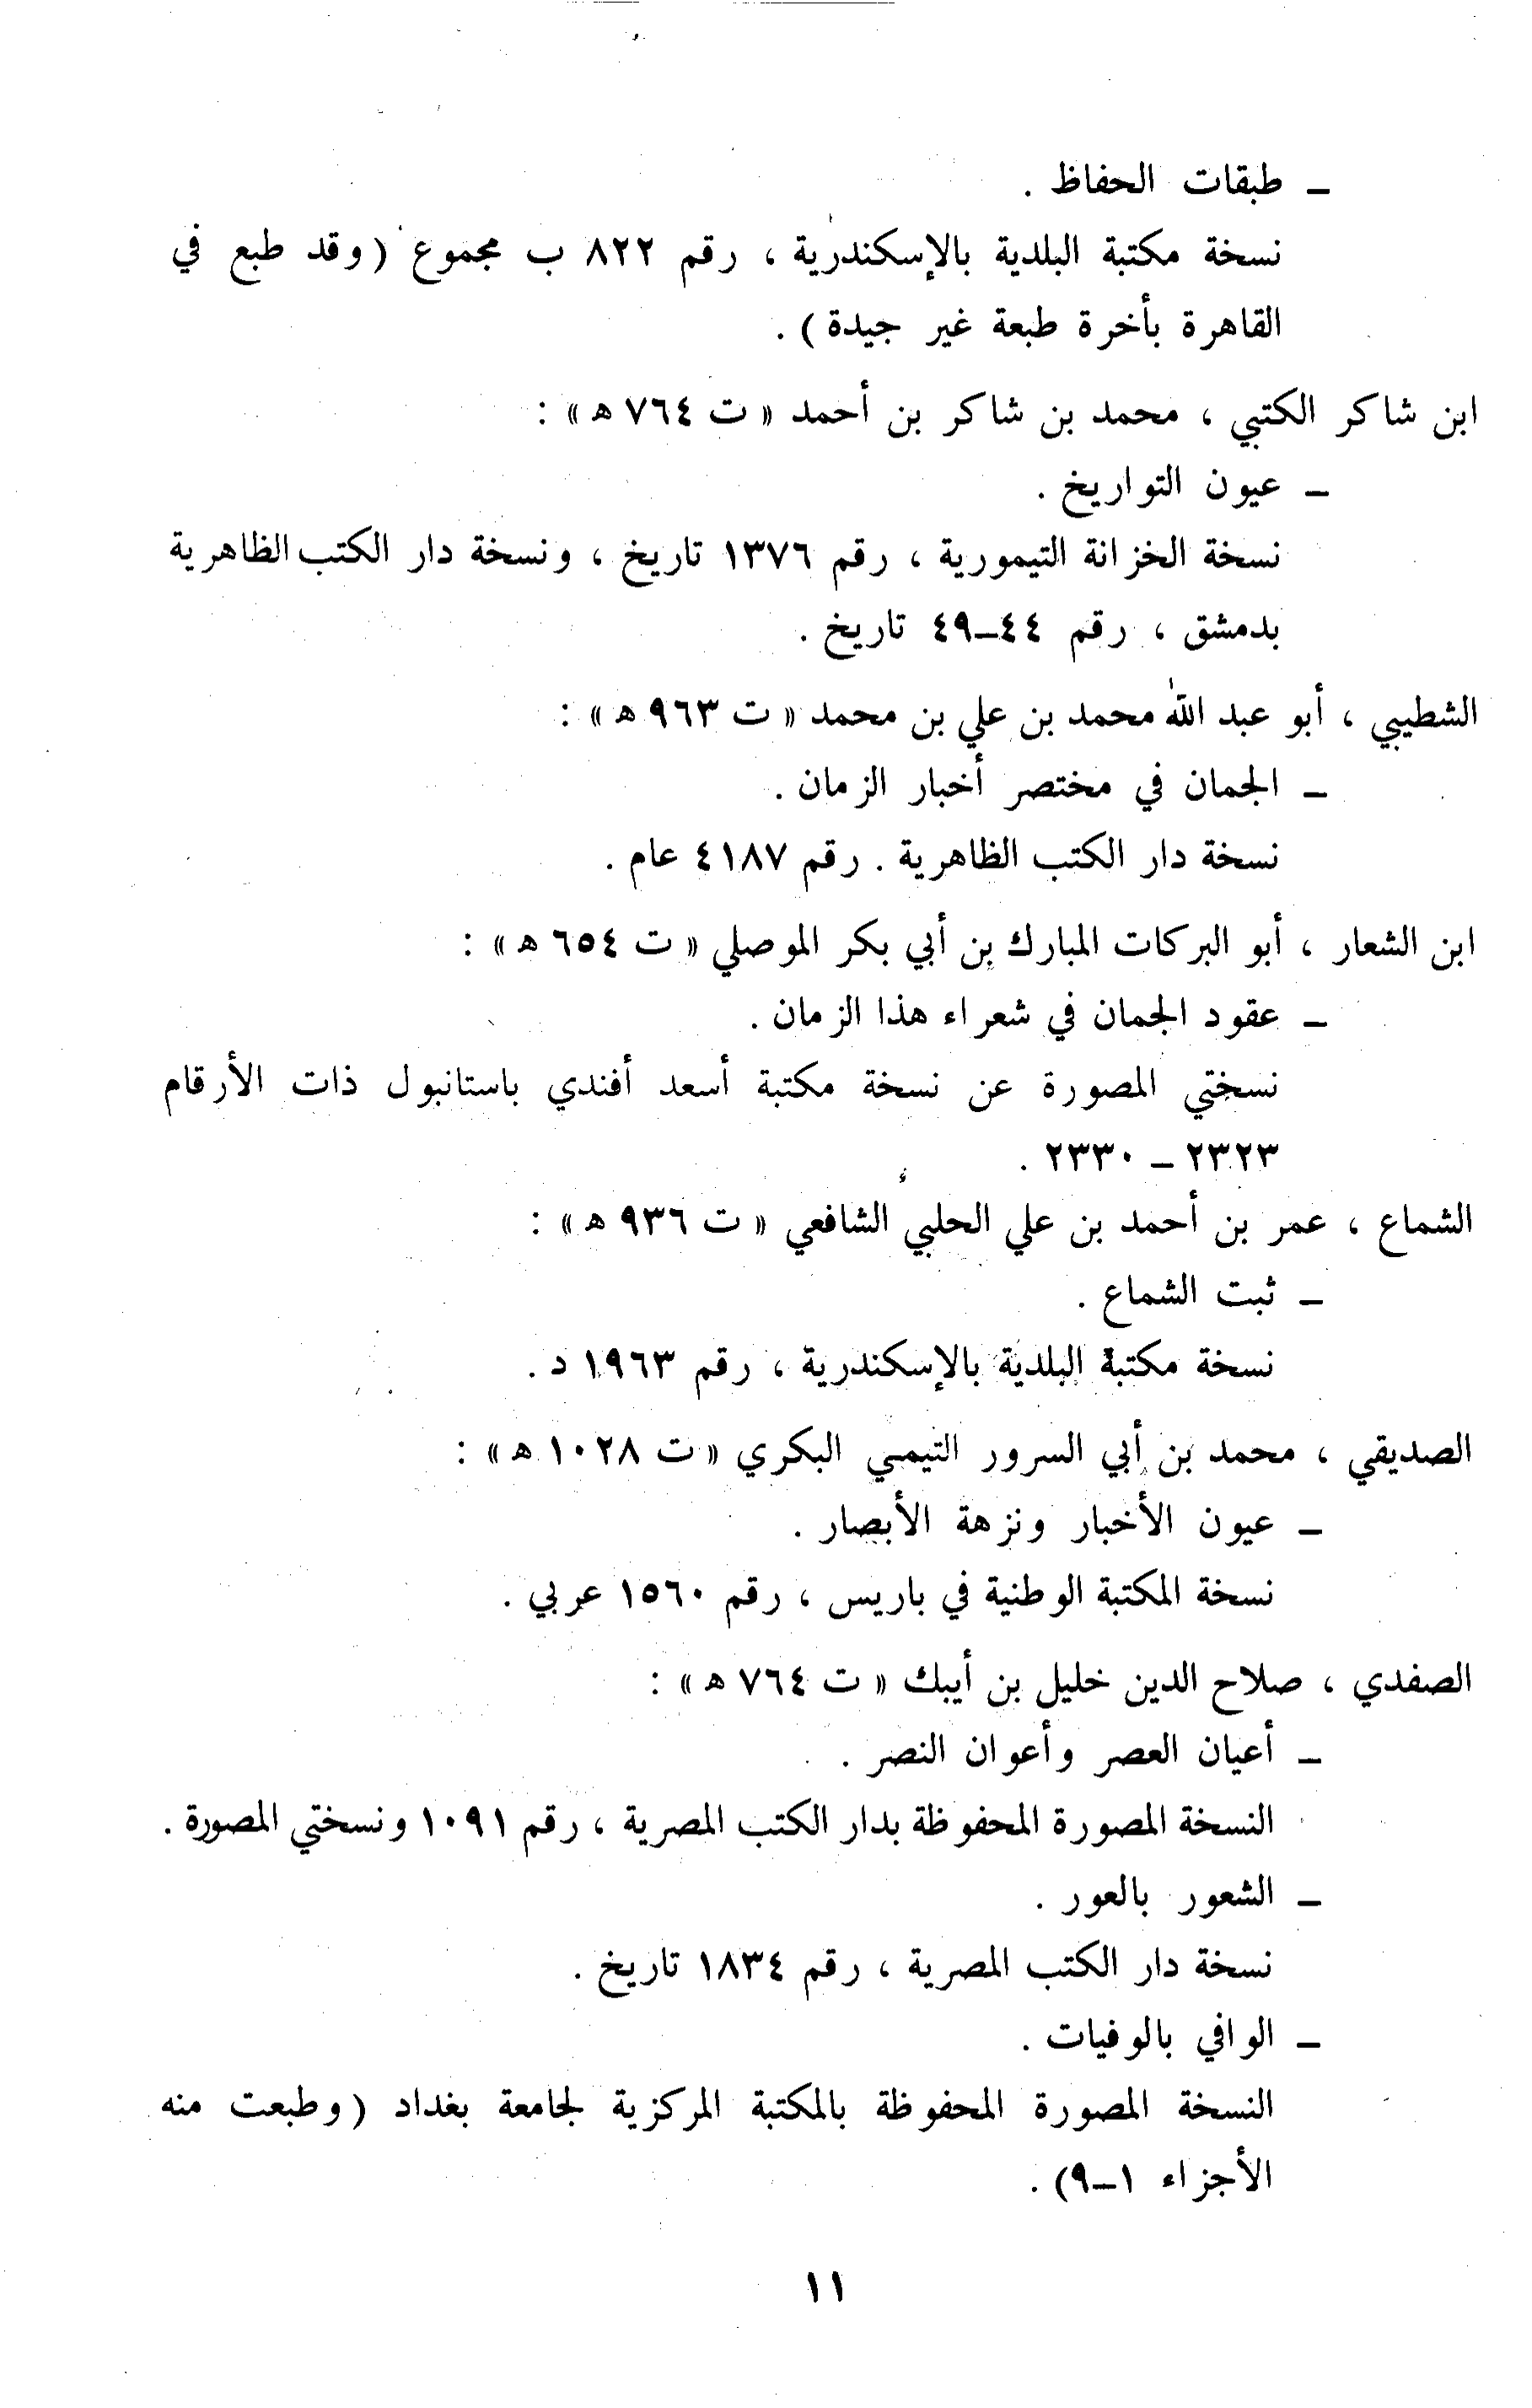 ــ طبقات الحفاظ .
نسخة مكتبة البلدية بالإسكندرية ، رقم ٨٢٢ ب مجموع (وقد طبع في
القاهرة بأخرة طبعة غير جيدة) .
ابن شاكر الكتبي ، محمد بن شاكر بن أحمد «ت ٧٦٤ ه» :
ــ عيون التواريخ .
نسخة الخزانة التيمورية ، رقم ١٣٧٦ تاريخ ، ونسخة دار الكتب الظاهرية
بدمشق ، رقم ٤٤ــ٤٩ تاريخ .
الشطيبي ، أبو عبد الله محمد بن علي بن محمد «ت ٩٦٣ ه» :
ــ الجمان في مختصر أخبار الزمان .
نسخة دار الكتب الظاهرية . رقم ٤١٨٧ عام .
ابن الشعار ، أبو البركات المبارك بن أبي بكر الموصلي «ت ٦٥٤ ه» :
ــ عقود الجمان في شعراء هذا الزمان .
نسختي المصورة عن نسخة مكتبة أسعد أفندي باستانبول ذات الأرقام
٢٣٢٣ ــ ٢٣٣٠ .
الشماع ، عمر بن أحمد بن علي الحلبي الشافعي «ت ٩٣٦ ه» :
ــ ثبت الشماع .
نسخة مكتبة البلدية بالإسكندرية ، رقم ١٩٦٣ د .
الصديقي ، محمد بن أبي السرور التيمي البكري «ت ١٠٢٨ ه» :
ــ عيون الأخبار ونزهة الأبصار .
نسخة المكتبة الوطنية في باريس ، رقم ١٥٦٠ عربي .
الصفدي ، صلاح الدين خليل بن أيبك «ت ٧٦٤ ه» :
ــ أعيان العصر وأعوان النصر .
النسخة المصورة المحفوظة بدار الكتب المصرية ، رقم ١٠٩١ ونسختي المصورة .
ــ الشعور بالعور .
نسخة دار الكتب المصرية ، رقم ١٨٣٤ تاريخ .
ــ الوافي بالوفيات .
النسخة المصورة المحفوظة بالمكتبة المركزية لجامعة بغداد (وطبعت منه
الأجزاء ١ــ٩) .
١١